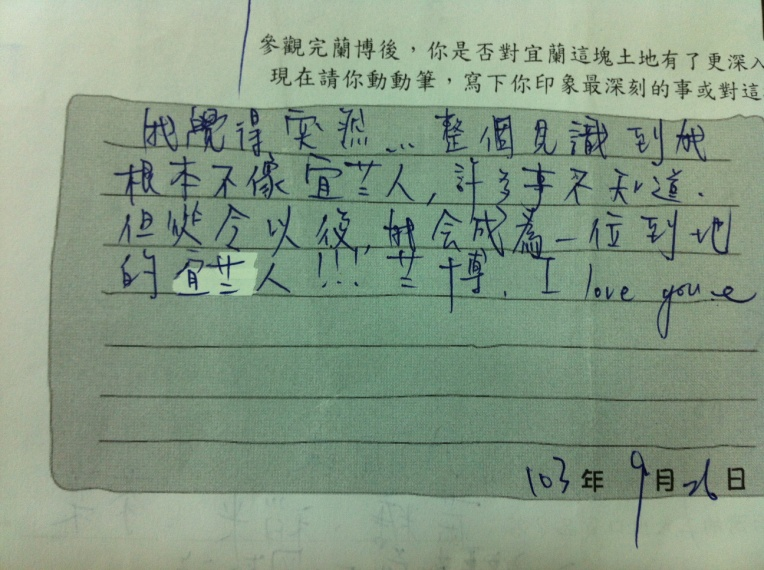 參觀完蘭博後，你是否對宜蘭這塊土地有了更深入
現在請你動動筆，寫下你印象最深刻的事或對這
我覺得突然... 整個見識到我
根本不像宜兰人, 許多事不知道.
但從今以後, 我会成為一位到地
的宜兰人!!! 兰博, I love you
103年 9月26日